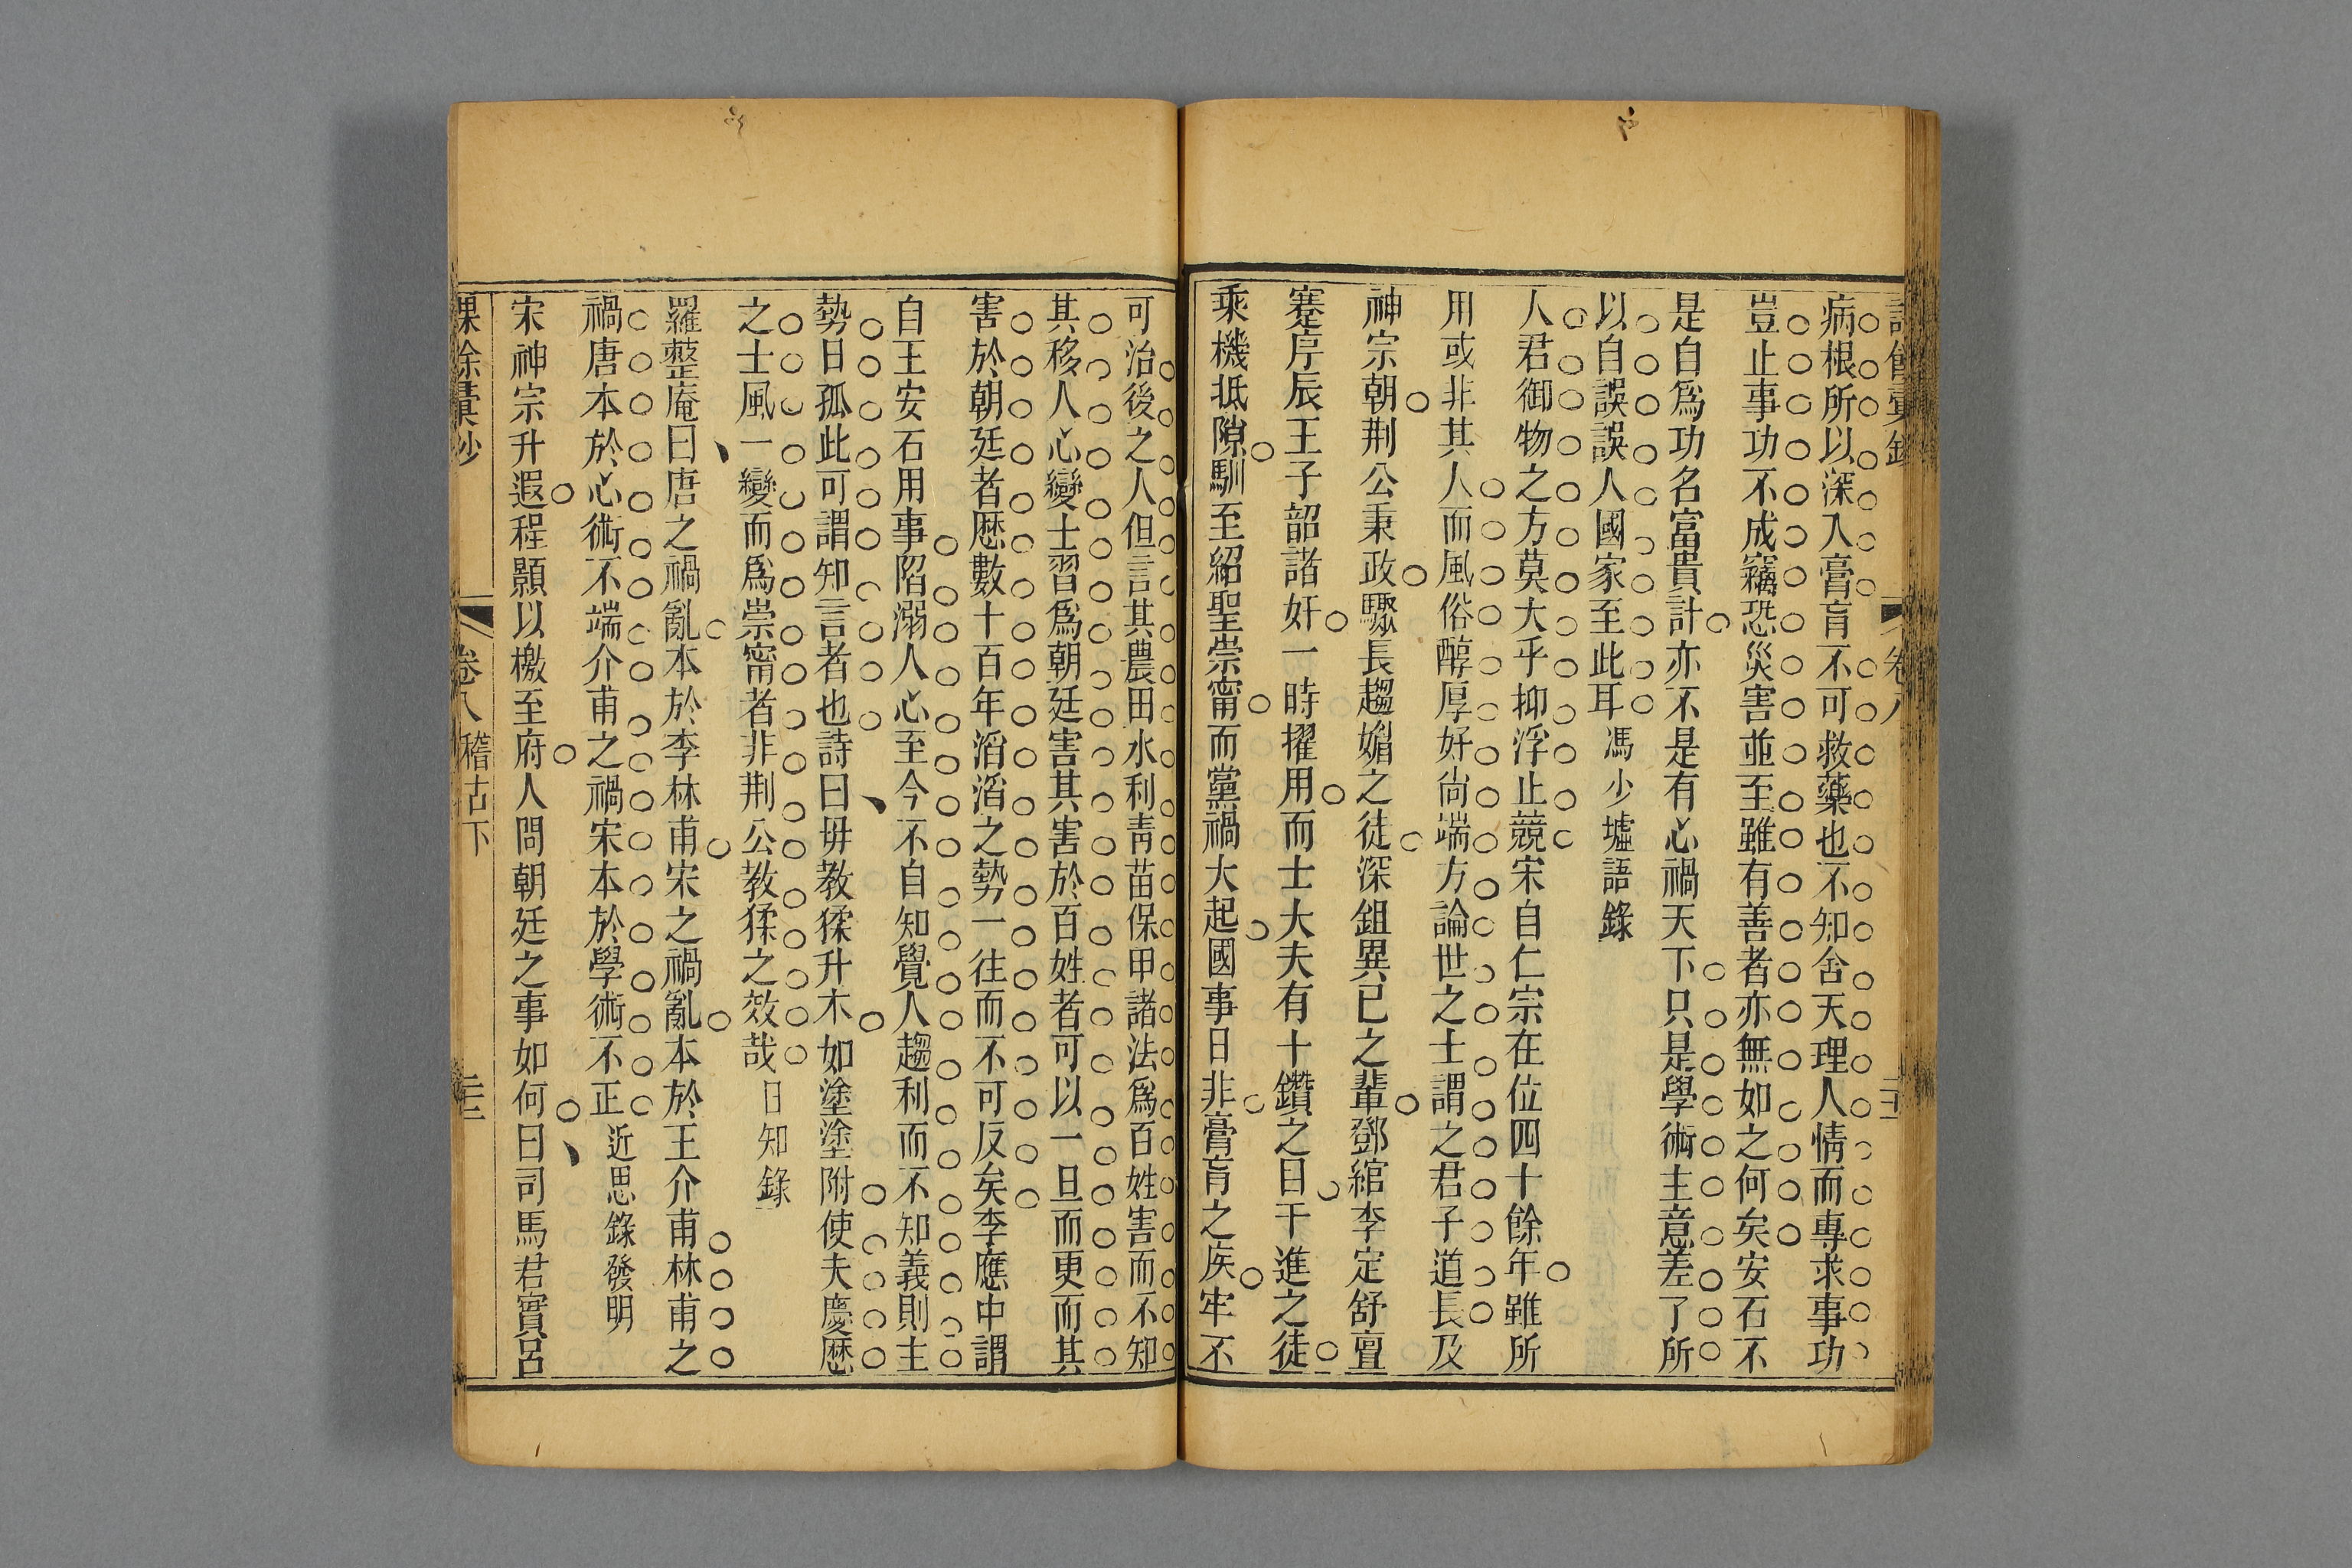 病根所以深入膏肓不可救藥也不知舍天理人情而專求事功
豈止事功不成竊恐災害並至雖有善者亦無如之何矣安石不
是自爲功名富貴計亦不是有心禍天下只是學術主意差了所
以自誤誤人國家至此耳馮少墟語錄
人君御物之方莫大乎抑浮止競宋自仁宗在位四十餘年雖所
用或非其人而風俗醇厚好尚端方論世之士謂之君子道長及
神宗朝荆公秉政驟長趨媚之徒深鉏異已之輩鄧綰李定舒亶
蹇序辰王子韶諸奸一時擢用而士大夫有十鑽之目干進之徒
乘機抵隙馴至紹聖崇甯而黨禍大起國事日非膏肓之疾牢不
可治後之人但言其農田水利青苗保甲諸法爲百姓害而不知
其移人心變士習爲朝廷害其害於百姓者可以一旦而更而其
害於朝廷者歷數十百年滔滔之勢一往而不可反矣李應中謂
自王安石用事陷溺人心至今不自知覺人趨利而不知義則主
勢日孤此可謂知言者也詩曰毋教猱升木如塗塗附使夫慶歷
之士風一變而爲崇甯者非荆公教猱之效哉日知錄
羅整庵曰唐之禍亂本於李林甫宋之禍亂本於王介甫林甫之
禍唐本於心術不端介甫之禍宋本於學術不正近思錄發明
宋神宗升遐程顥以檄至府人問朝廷之事如何曰司馬君實呂
卷八 稽古下